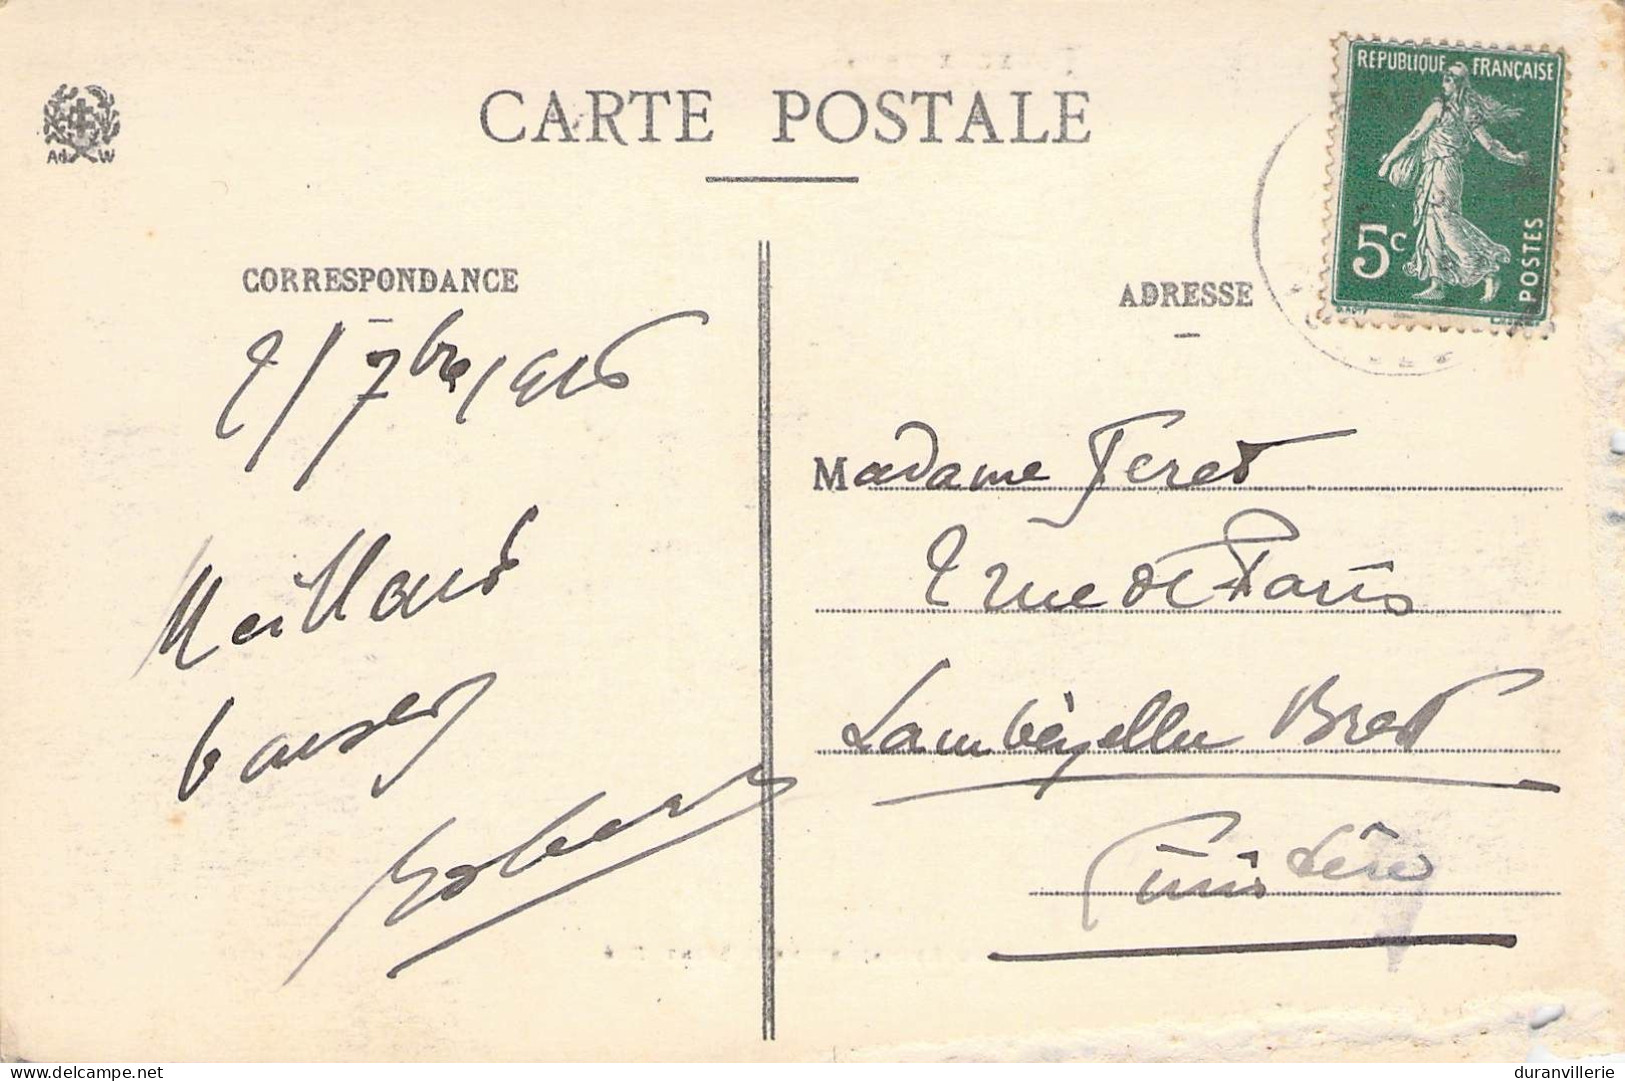 RÉPUBLIQUE FRANÇAISE
CARTE POSTALE
Ad W
5c
POSTES
CORRESPONDANCE
ADRESSE
2/7bre 1916
Madame Feret
2 rue de Paris
Meilleurs
baisers
Lambézellec Brest
Robert
Finistère
delcampe.net
duranvillerie